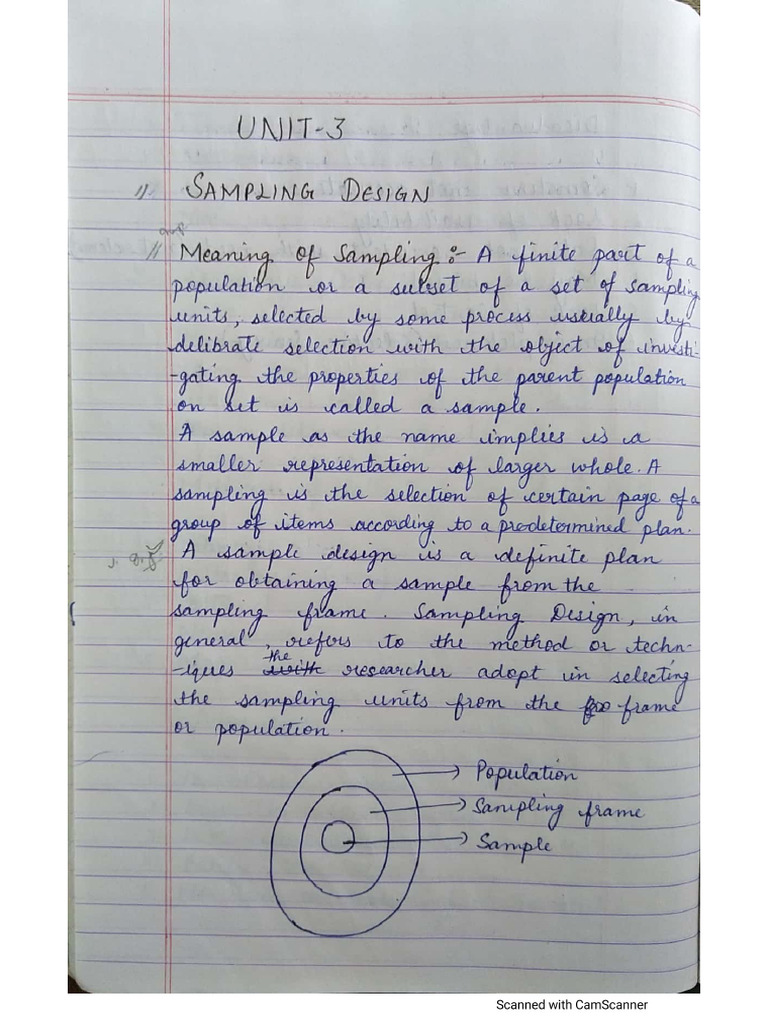 UNIT-3
SAMPLING DESIGN
Meaning of Sampling :- A finite part of a
population or a subset of a set of sampling
units, selected by some process usually by
delibrate selection with the object of investi-
-gating the properties of the parent population
on set is called a sample.
A sample as the name implies is a
smaller representation of larger whole. A
sampling is the selection of certain page of a
group of items according to a predetermined plan.
A sample design is a definite plan
for obtaining a sample from the
sampling frame. Sampling Design, in
general, refers to the method or techn-
-iques the researcher adopt in selecting
the sampling units from the frame
or population.
Population
Sampling frame
Sample
Scanned with CamScanner